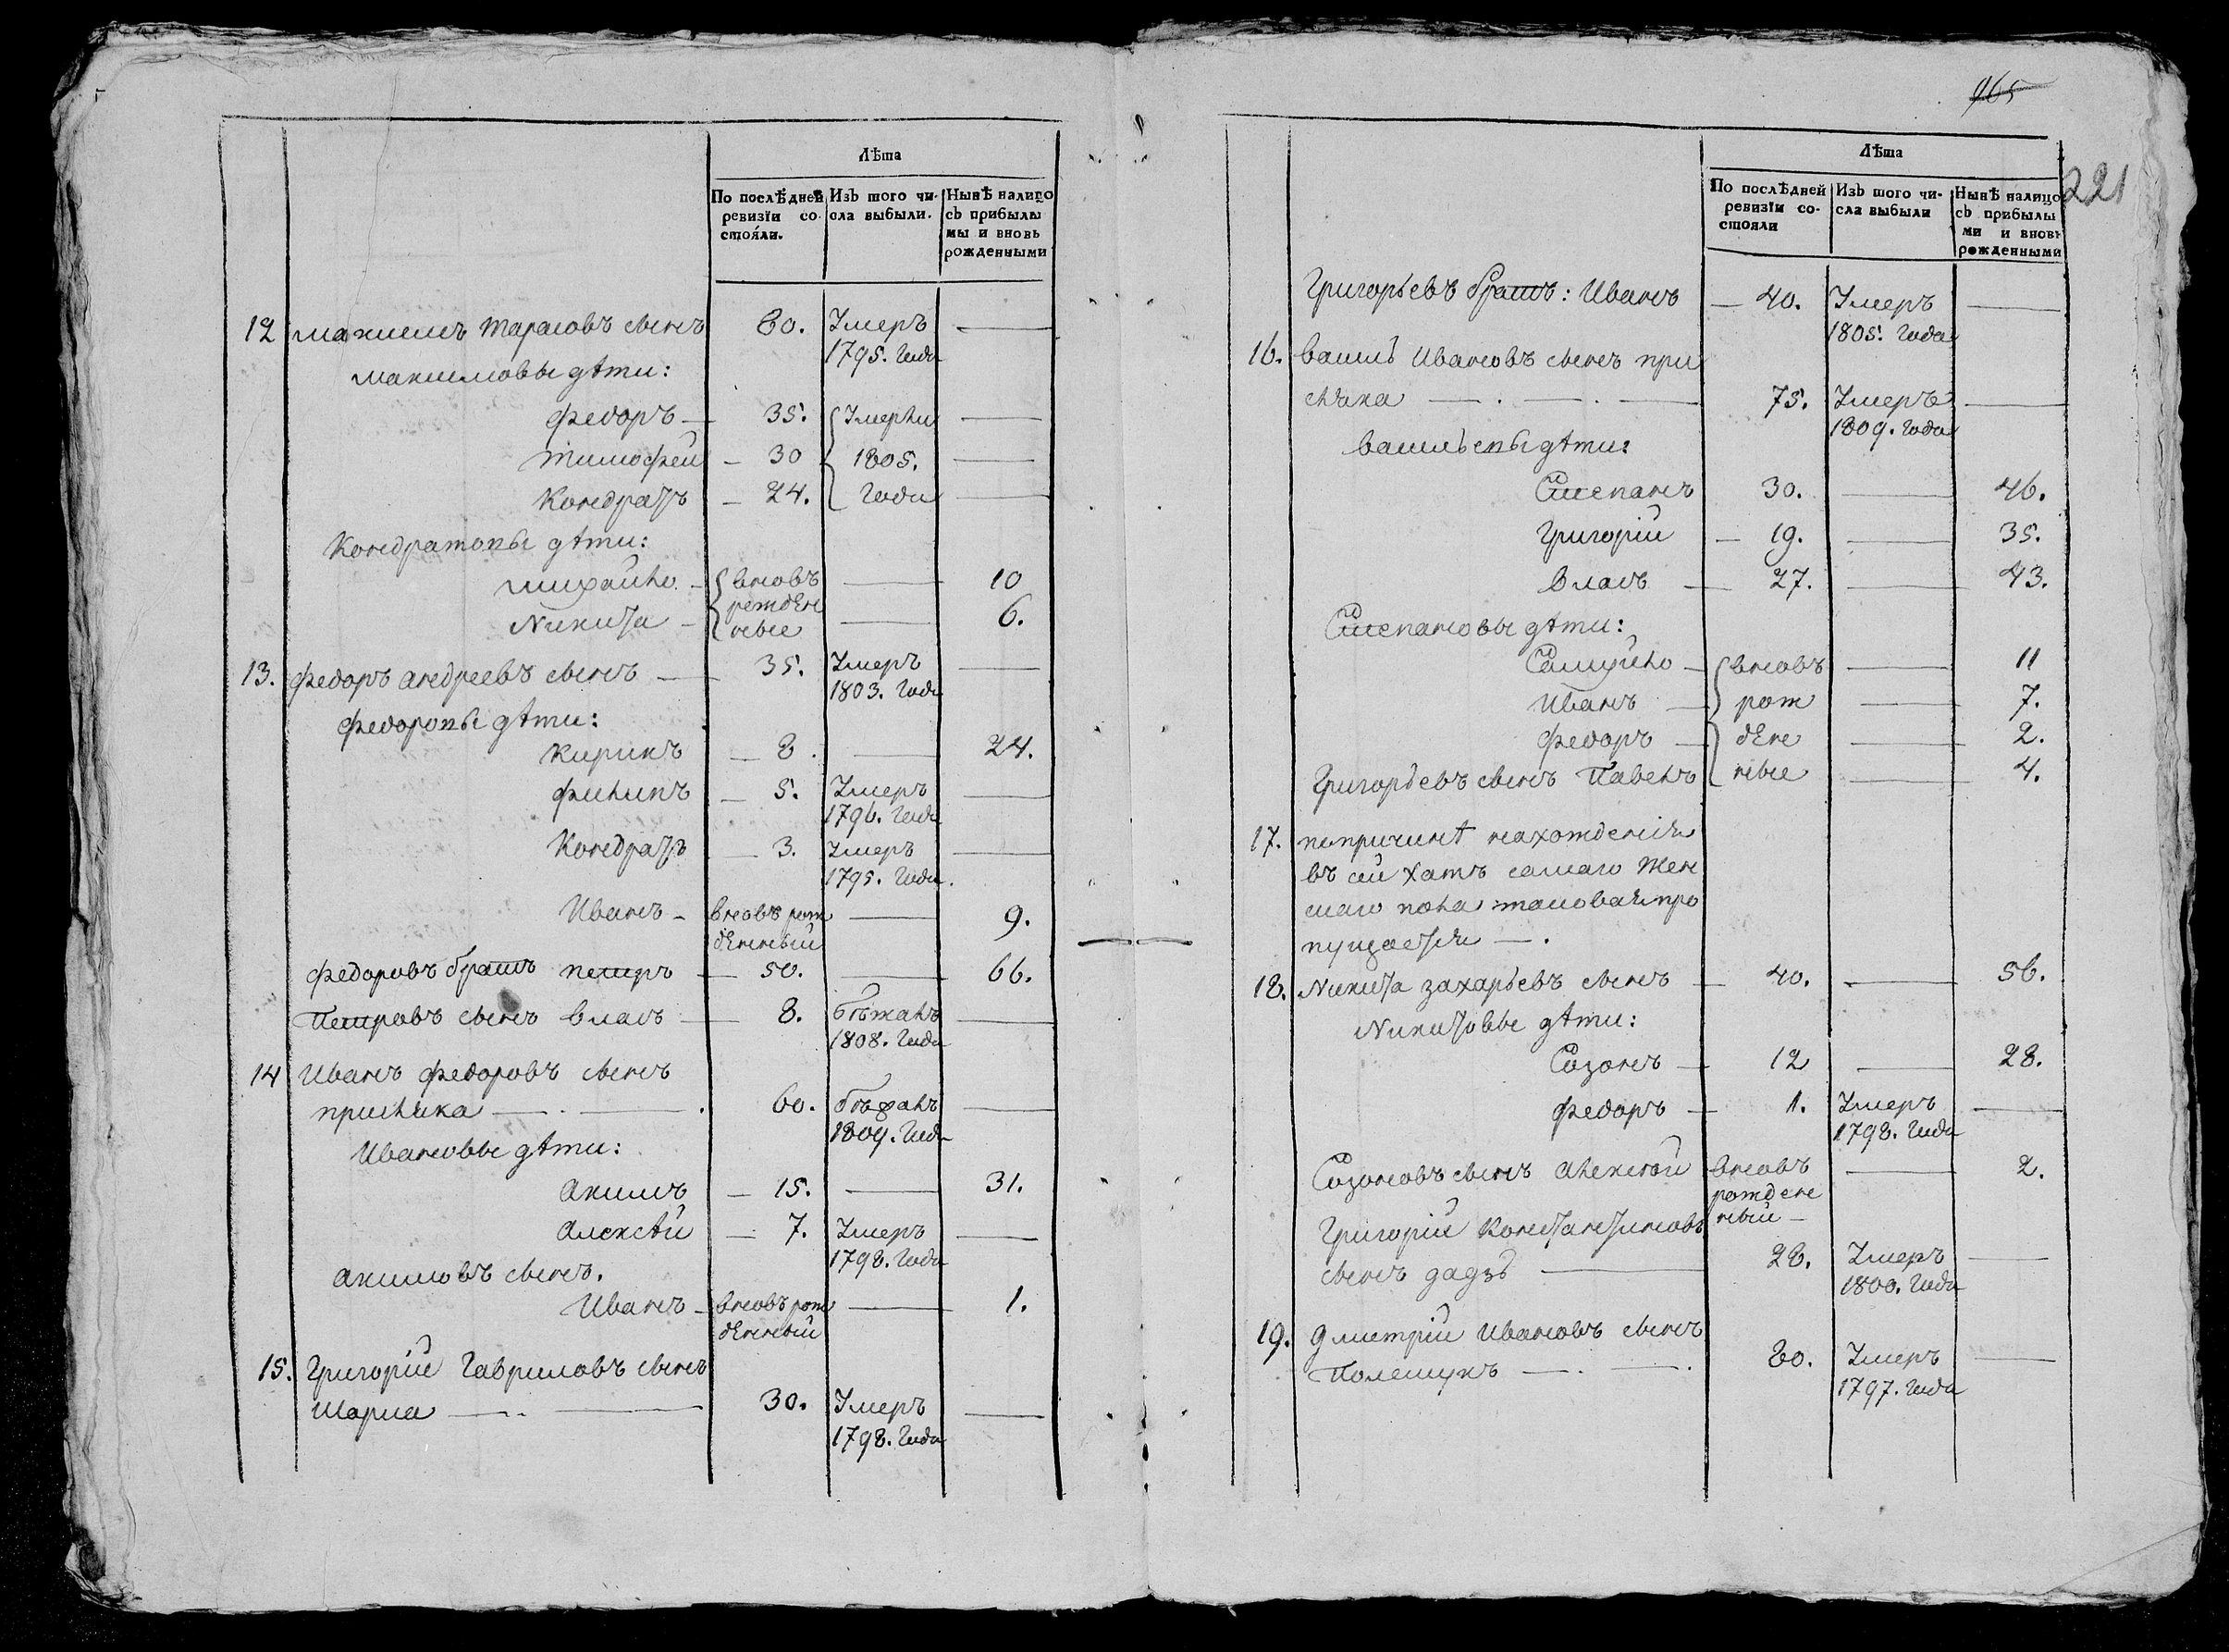 Лѣта
По послѣдней ревизїи состояли.
Изъ того числа выбыли.
Нынѣ налицо съ прибылы мы и вновь рожденными
12 максимъ тарасовъ сынъ 80. Умеръ 1795. Года —
максимовы дѣти:
федоръ — 35. Умерли —
тимофей — 30 1805. —
Кондратъ — 24. Года —
Кондратовы дѣти:
михайло — вновь — 10
Никита — рожденные — 6.
13. федоръ андреевъ сынъ — 35. Умеръ 1803. Года —
федоровы дѣти:
кирикъ — 8. — 24.
филипъ — 5. Умеръ 1796. Года —
Кондратъ — 3. Умеръ 1795. Года —
Иванъ — вновь рожденный — 9.
федоровъ братъ петръ — 50. — 66.
Петровъ сынъ власъ — 8. бѣжалъ 1808. Года —
14 Иванъ федоровъ сынъ
присяка — 60. бѣжалъ 1809. Года —
Ивановы дѣти:
акимъ — 15. — 31.
алексѣй — 7. Умеръ 1798. Года —
акимовъ сынъ.
Иванъ — вновь рожденный — 1.
15. Григорій Гавриловъ сынъ
— 30. Умеръ 1798. Года —
165
221
Лѣта
По послѣдней ревизїи состояли
Изъ того числа выбыли
Нынѣ налицо съ прибылы ми и вновь рожденными
Григорьевъ братъ: Иванъ — 40. Умеръ 1805. Года —
16. василь Ивановъ сынъ при
сяка — 75. Умеръ 1809. Года —
васильевы дѣти:
Степанъ 30. — 46.
Григорій — 19. — 35.
власъ — 27. — 43.
Степановы дѣти:
Самуйло — вновь — 11
Иванъ — рож — 7.
федоръ — ден — 2.
Григорьевъ сынъ Павелъ ные — 4.
17. попричинѣ нахожденія
въ сей хатѣ самаго жен
скаго пола таковая про
пущается —.
18. Никита захарьевъ сынъ — 40. — 56.
Никитовы дѣти:
Созонъ — 12 — 28.
федоръ — 1. Умеръ 1798. Года —
Созоновъ сынъ алексѣй вновь рожденный — 2.
Григорій Константиновъ
сынъ — 28. Умеръ 1800. Года —
19. дмитрій Ивановъ сынъ
Полещукъ — 80. Умеръ 1797. Года —